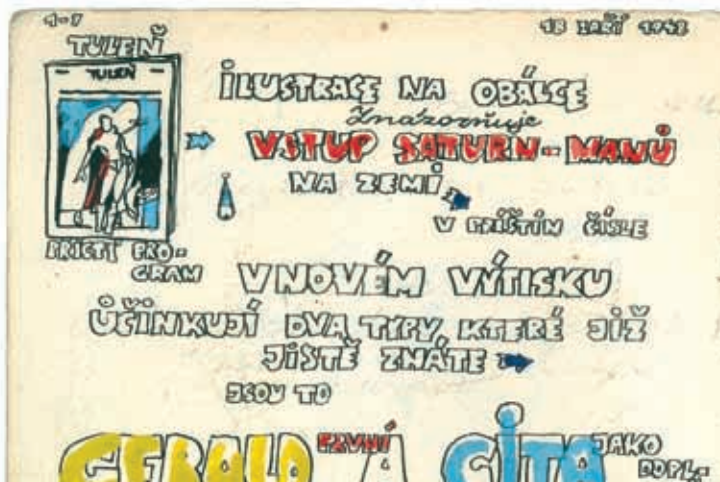 18 ZÁŘÍ 1948
TULEŇ
TULEŇ
ILUSTRACE NA OBÁLCE
Znázorňuje
VSTUP SATURN-MANŮ
NA ZEMI
V PŘÍŠTÍM ČÍSLE
PŘÍŠTÍ PRO-
GRAM
V NOVÉM VÝTISKU
ÚČINKUJÍ DVA TYPY, KTERÉ JIŽ
JISTĚ ZNÁTE
JSOU TO
GERALD PRVNÍ A CÍTA JAKO
DOPL-